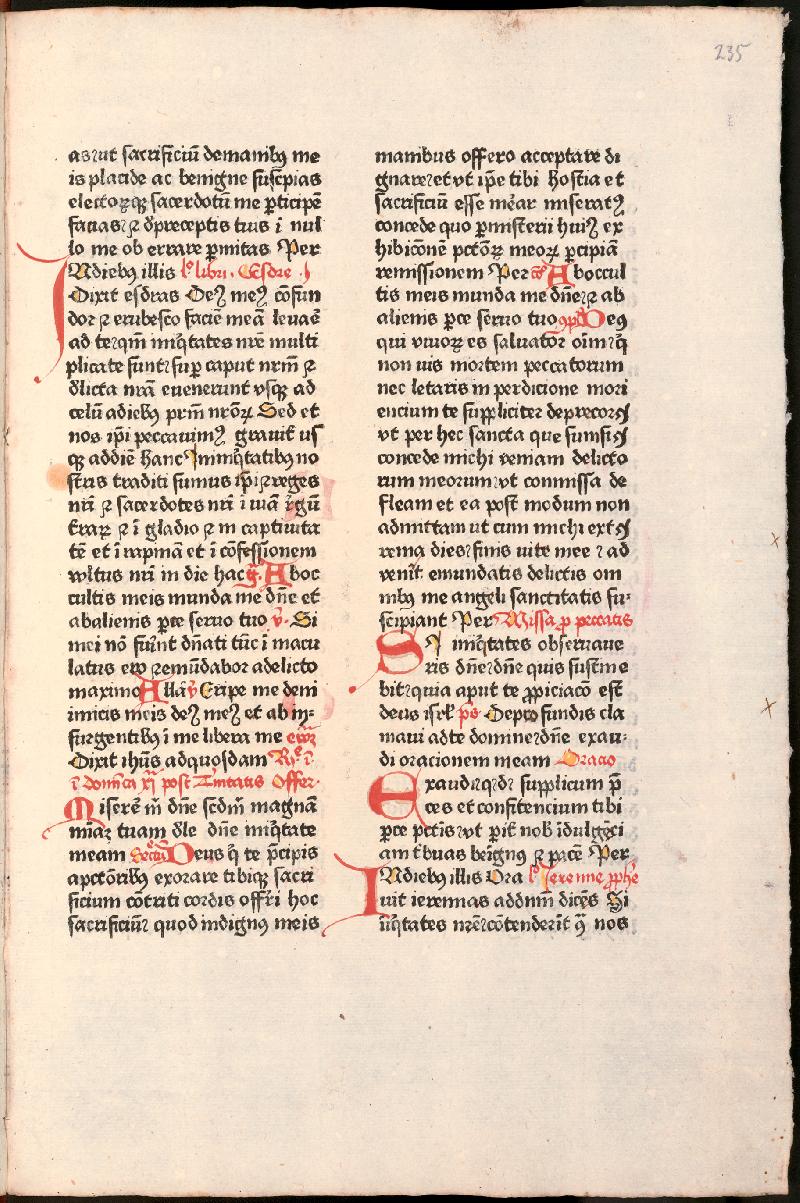 235
as ut sacrificiū de manibꝯ me
is placide ac benigne suscipias
electoꝝqꝫ sacerdotū me ꝑticipē
facias ⁊ ď preceptis tuis ī nul
lo me ob errare ꝑmitas Per
INdiebꝯ illis lꝰ libri . Esdre . j
Dixit esdras Deꝯ meꝯ cōfun
dor ⁊ erubesco faciē meā leuare
ad te qm̄ iniq̄tates nr̄e multi
plicate sunt suꝑ caput nrm̄ ⁊
ďlicta nrā euenerunt vsqꝫ ad
celū a diebꝯ prm̄ nr̄oꝝ Sed et
nos ip̄i peccauimꝯ grauit̄ us
qꝫ ad diē hanc In iniq̄tatibꝯ no
stris traditi sumus ip̄i ⁊ reges
nrī ⁊ sacerdotes nrī ī manū regū
t̄raꝝ ⁊ ī gladio ⁊ in captiuita
tē et ī rapinā et ī cōfessionem
wltus nrī in die hac g̃. Aboc
cultis meis munda me dn̄e et
ab alienis ꝑce seruo tuo v̄. Si
mei nō fuīnt dn̄ati tūc ī macu
latus ero ⁊ emūdabor a delicto
maximo Alla v̄ Eripe me de ini
imicis meis deꝯ meꝯ et ab in-
surgentibꝯ ī me libera me ewꝝ
Dixit ihūs ad quosdam Rꝫ ī
ī domīca xj post Trinitatis Offer.
Miserē m̄ dn̄e scdm̄ magnā
mīaꝫ tuam dele dn̄e iniq̄tate
meam Secretū Deus q̄ te p̄cipis
a pctōribꝯ exorare tibiqꝫ sacri
ficium cōtriti cordis offrī hoc
sacrificiū quod indignꝯ meis
manibus offero acceptare di
gnare et vt ip̄e tibi hostia et
sacrificiū esse merear miseratꝯ
concede quo ꝑ misterii huiꝯ ex
hibicōnē pctōꝝ meoꝝ ꝑcipiā
remissionem Per cō Aboccul
tis meis munda me dn̄e ⁊ ab
alienis ꝑce seruo tuo 9pl Deꝯ
qui viuoꝝ es saluator oīm ⁊ q̄
non uis mortem peccatorum
nec letaris in perdicione mori
encium te suppliciter deprecor
vt per hec sancta que sumsi
concede michi veniam delicto
rum meorum vt commissa de
fleam et ea post modum non
admittam ut cum michi ext
rema dies finis uite mee ad
venīt emundatis delictis om
nibꝯ me angeli sanctitatis su-
scipiant Per Missa ꝓ peccatis
SI iniq̄tates obseruaue
ris dn̄e dn̄e quis sustine
bit quia aput te ꝓpiciacō est
deus isr̄l ps Deprofundis cla
maui ad te domine dn̄e exau-
di oracionem meam Oracio
Exaudi qs̄ dn̄e supplicum p̄
ces et confitencium tibi
ꝑce pctīs vt parit̄ nob̄ īdulgēci
am tribuas benignꝯ ⁊ pacē Per
INdiebꝯ illis Ora lꝰ Jeremie ꝓphe
uit ieremias ad dnm̄ dicēs Si
iniq̄tates nrē cōtenderīt 9̄ nos